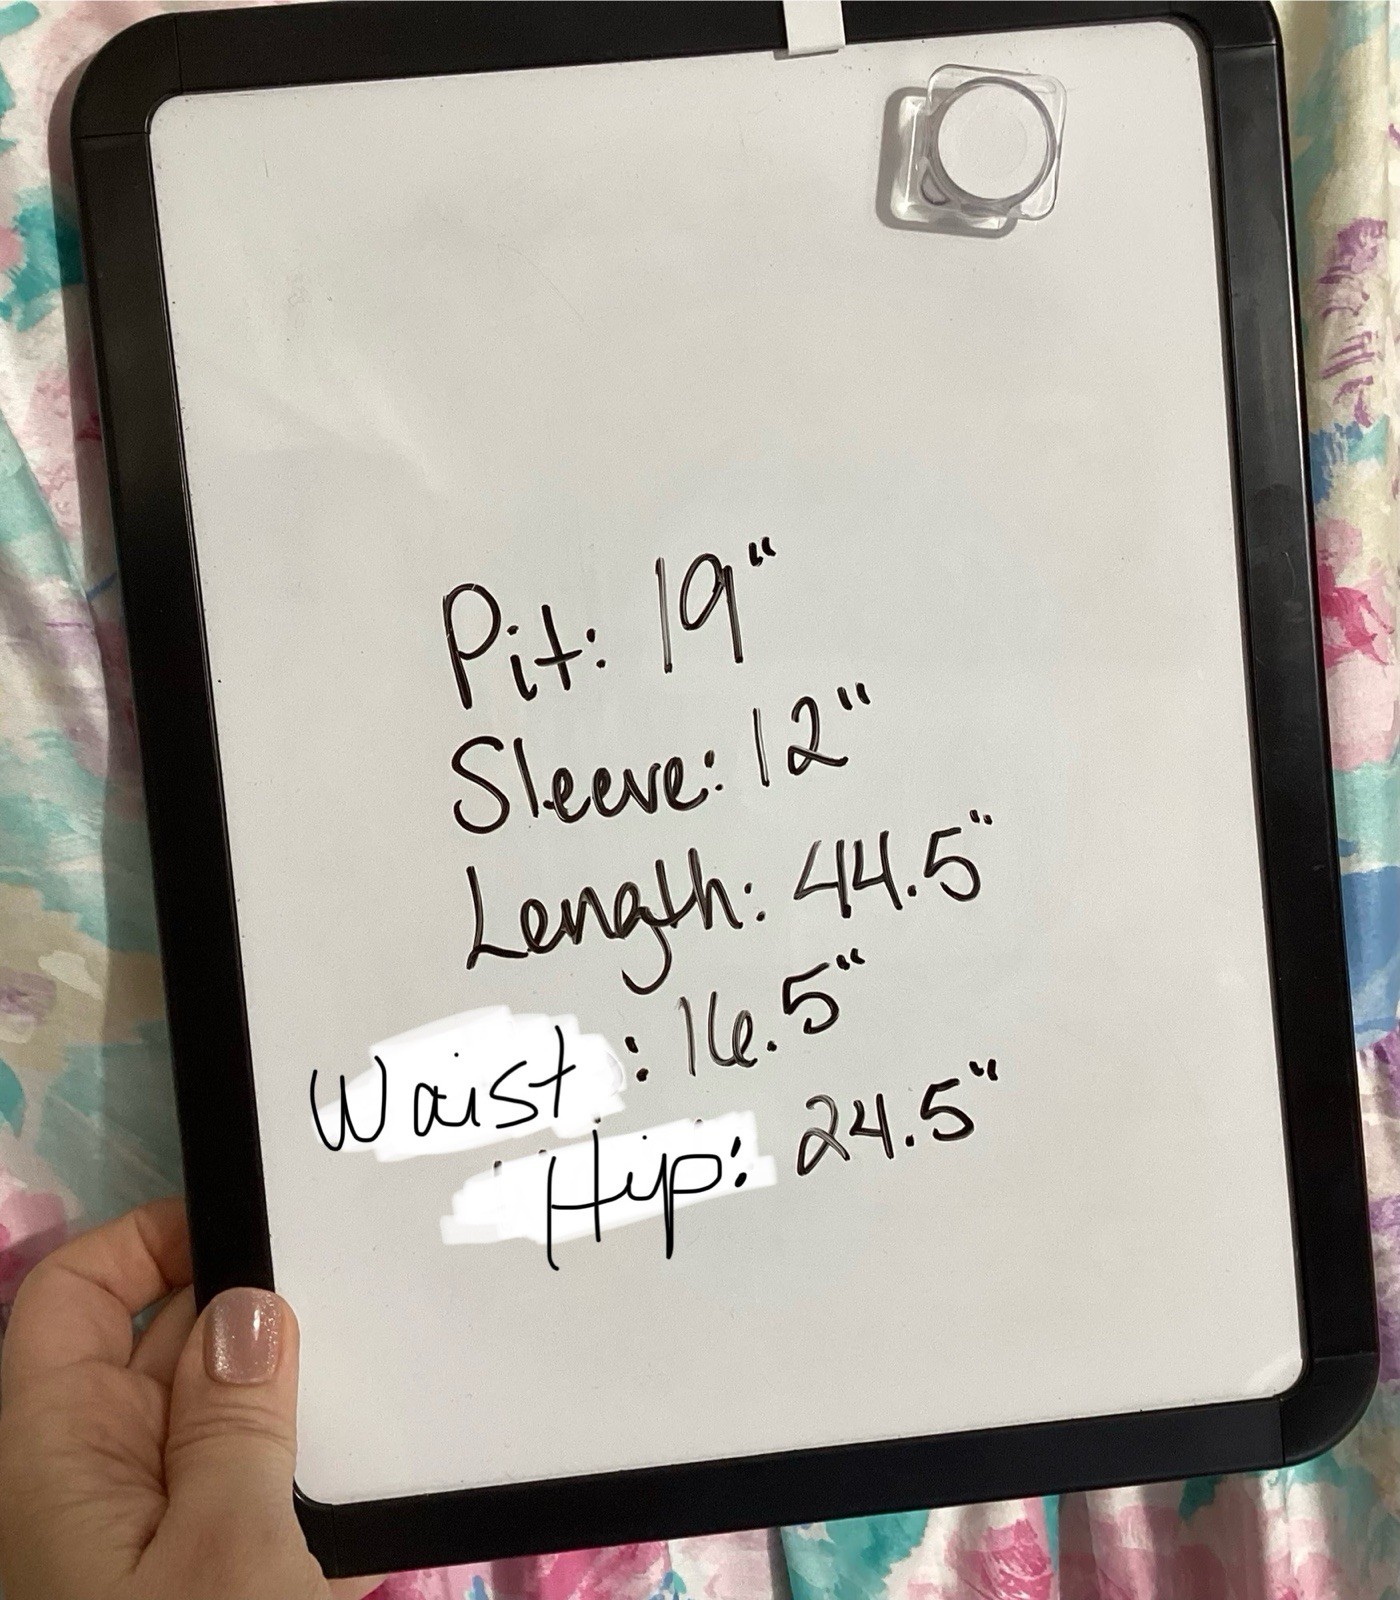 Pit: 19"
Sleeve: 12"
Length: 44.5"
Waist: 16.5"
Hip: 24.5"